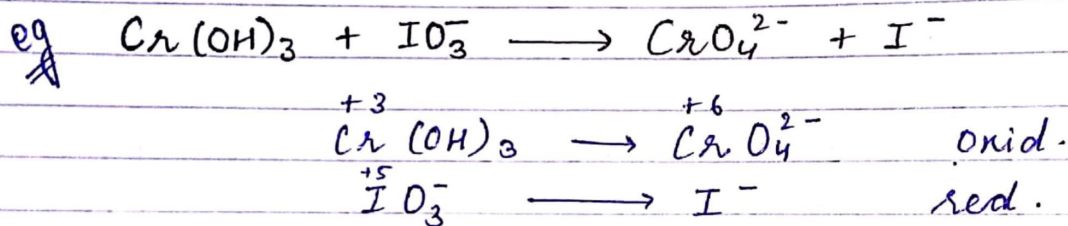 eg Cr(OH)₃ + IO₃⁻ ⟶ CrO₄²⁻ + I⁻
+3 +6
Cr(OH)₃ ⟶ CrO₄²⁻ oxid.
+5
IO₃⁻ ⟶ I⁻ red.